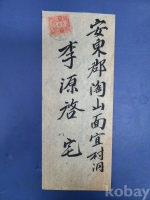 安東郡陶山面宜村洞
李源啓 宅
kobay